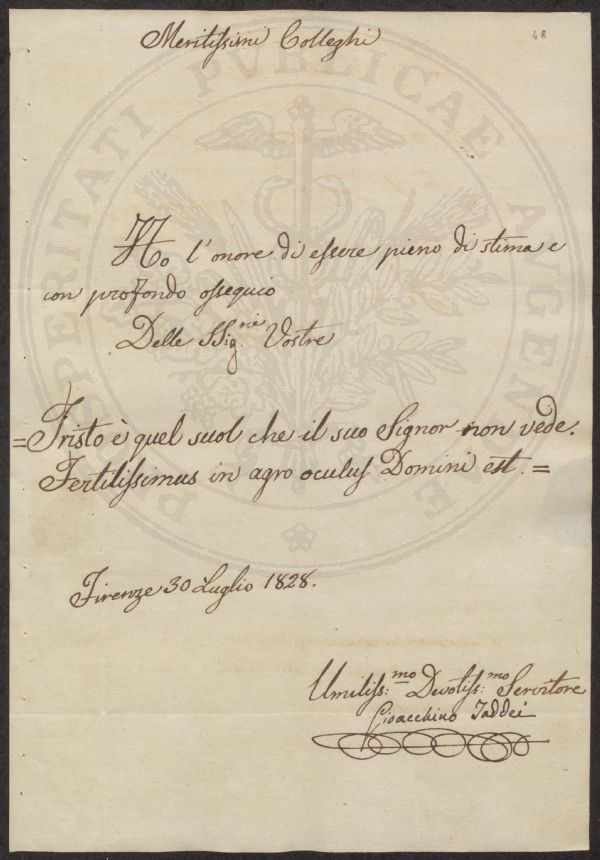 Meritissimi Colleghi
48
Ho l'onore di essere pieno di stima e
con profondo ossequio
Delle SSig.rie Vostre
=Tristo è quel suol che il suo Signor non vede.
Fertilissimus in agro oculus Domini est.=
Firenze 30 Luglio 1828.
Umiliss:mo Devotiss:mo Servitore
Gioacchino Taddei
PROSPERITATI PVBLICAE AVGENDAE